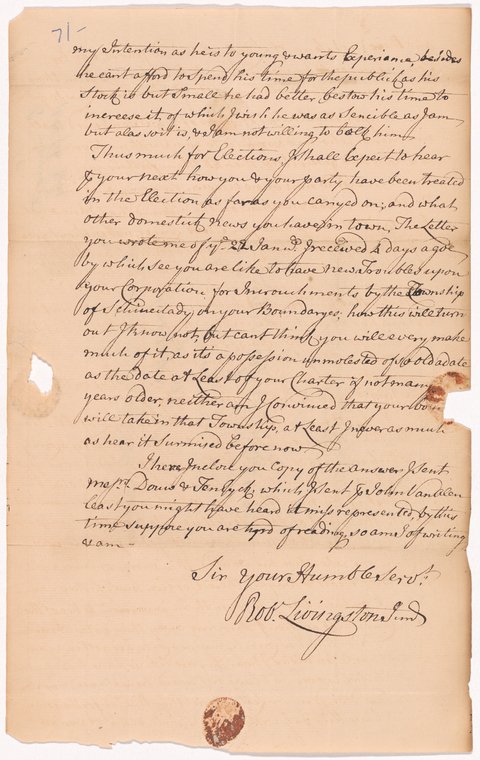 71-
my Intention as he is to young & wants Experiance, besides
he cant afford to spend his time for the publick as his
Stock is but Small he had better bestow his time to
increese it, of which I wish he was as Sencible as I am
but alas so it is & I am not willing to balk him
Thus much for Elections, I shall Expect to hear
your next how you & your party have been treated
in the Election as far as you carryed on; and what
other domestick news you have in town, The Letter
you wrote me of ye. 22 Janry. I received 4 days agoe
by which see you are like to have new Troubles upon
your Corporation for Incrouchments by the Township
of Schinectady on your Boundarys; how this will turn
out I know not, but cant think you will every make
much of it, as its a possesion unmolested of so old a date
as the date at Least of your Charter if not many
years older, neither am I Convinced that your
will take in that Township, at Least I never as much
as hear it Surmised before now
There Inclose you Copy of the answer I sent
messrs. Douw & Tenyck, which I sent John Van
least you might have heard it miss represented, by this
time suppose you are tyrd of reading, so am I of writing
& am
Sir your Humble Servt.
Robt. Livingston Junr